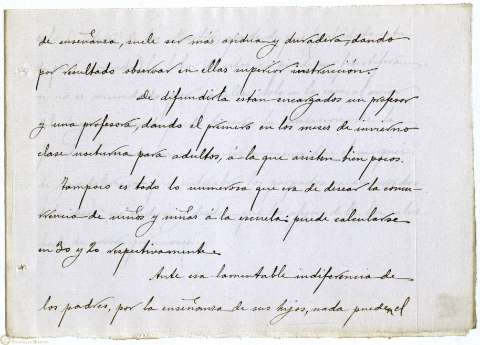 de enseñanza, suele ser más asidua y duradera, dando
por resultado observar en ellas superior instruccion.
De difundirla están encargados un profesor
y una profesora, dando el primero en los meses de invierno
clase nocturna para adultos, á la que asisten bien pocos.
Tampoco es todo lo numerosa que era de desear la concu-
rrencia de niños y niñas á la escuela: puede calcularse
en 30 y 20 respectivamente.
Ante esa lamentable indiferencia de
los padres, por la enseñanza de sus hijos, nada pueden el